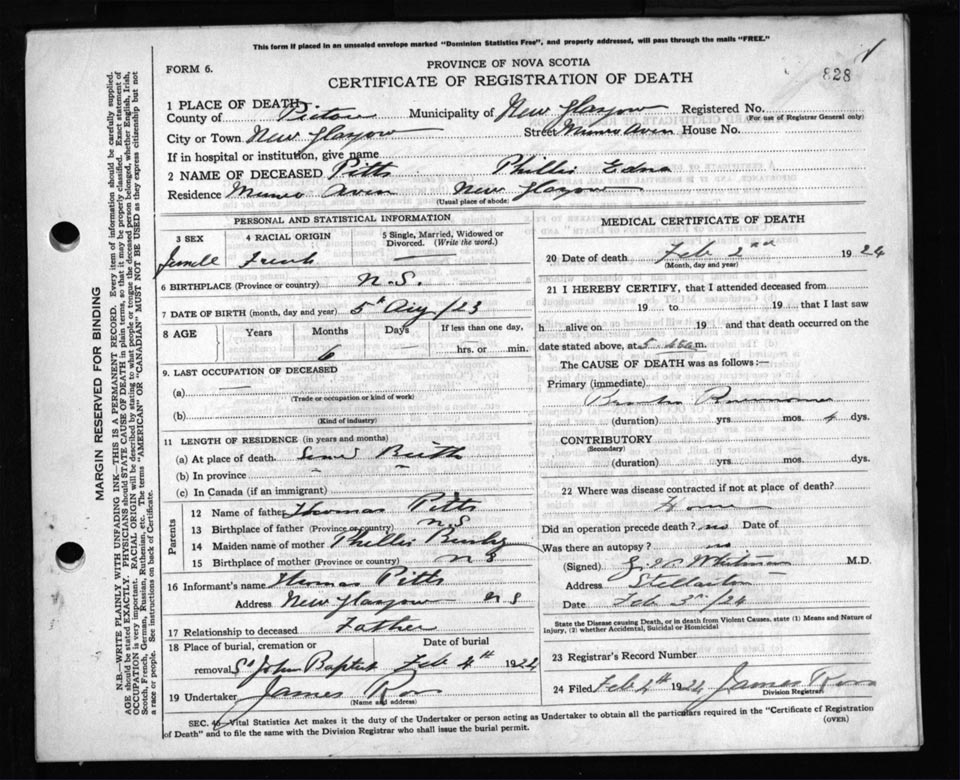 This form if placed in an unsealed envelope marked "Dominion Statistics Free", and properly addressed, will pass through the mails "FREE."
FORM 6.
PROVINCE OF NOVA SCOTIA
CERTIFICATE OF REGISTRATION OF DEATH
828
1 PLACE OF DEATH
County of Pictou Municipality of New Glasgow Registered No.
(For use of Registrar General only)
City or Town New Glasgow Street Munro Aven House No.
If in hospital or institution, give name
2 NAME OF DECEASED Pitts Phillis Edna
Residence Munro Aven New Glasgow
(Usual place of abode)
MARGIN RESERVED FOR BINDING
N.B.—WRITE PLAINLY WITH UNFADING INK—THIS IS A PERMANENT RECORD. Every item of information should be carefully supplied.
AGE should be stated EXACTLY. PHYSICIANS should STATE CAUSE OF DEATH in plain terms, so that it may be properly classified. Exact statement of
OCCUPATION is very important. RACIAL ORIGIN will be described by stating to what people or tongue the deceased person belonged, whether English, Irish,
Scotch, French, German, Russian, Ruthenian, etc. The terms "AMERICAN" OR "CANADIAN" MUST NOT BE USED as they express citizenship but not
a race or people. See instructions on back of Certificate.
PERSONAL AND STATISTICAL INFORMATION
3 SEX 4 RACIAL ORIGIN 5 Single, Married, Widowed or
Divorced. (Write the word.)
French —
6 BIRTHPLACE (Province or country) N.S.
7 DATE OF BIRTH (month, day and year) 5th Aug /23
8 AGE Years Months Days If less than one day,
6 — hrs. or min.
9. LAST OCCUPATION OF DECEASED
(a) —
(Trade or occupation or kind of work)
(b)
(Kind of industry)
11 LENGTH OF RESIDENCE (in years and months)
(a) At place of death Birth
(b) In province
(c) In Canada (if an immigrant)
Parents
12 Name of father Thomas Pitts
13 Birthplace of father (Province or country) N.S
14 Maiden name of mother Phillis
15 Birthplace of mother (Province or country) N S
16 Informant's name Thomas Pitts
Address New Glasgow N S
17 Relationship to deceased Father
18 Place of burial, cremation or Date of burial
removal St John Baptist Feb 4th 1924
19 Undertaker James
(Name and address)
MEDICAL CERTIFICATE OF DEATH
20 Date of death Feb 2nd 1924
(Month, day and year)
21 I HEREBY CERTIFY, that I attended deceased from
19 to 19 that I last saw
h alive on 19 and that death occurred on the
date stated above, at 5 m.
The CAUSE OF DEATH was as follows:—
Primary (immediate)
(duration) yrs mos. 4 dys.
CONTRIBUTORY
(Secondary)
(duration) yrs mos. dys.
22 Where was disease contracted if not at place of death?
Home
Did an operation precede death? no Date of
Was there an autopsy? no
(Signed) Whitman M.D.
Address Stellarton
Date Feb 3rd /24
State the Disease causing Death, or in death from Violent Causes, state (1) Means and Nature of
Injury, (2) whether Accidental, Suicidal or Homicidal
23 Registrar's Record Number
24 Filed Feb 1924 James
Division Registrar
SEC. 40—Vital Statistics Act makes it the duty of the Undertaker or person acting as Undertaker to obtain all the particulars required in the "Certificate of Registration
of Death" and to file the same with the Division Registrar who shall issue the burial permit.
(OVER)